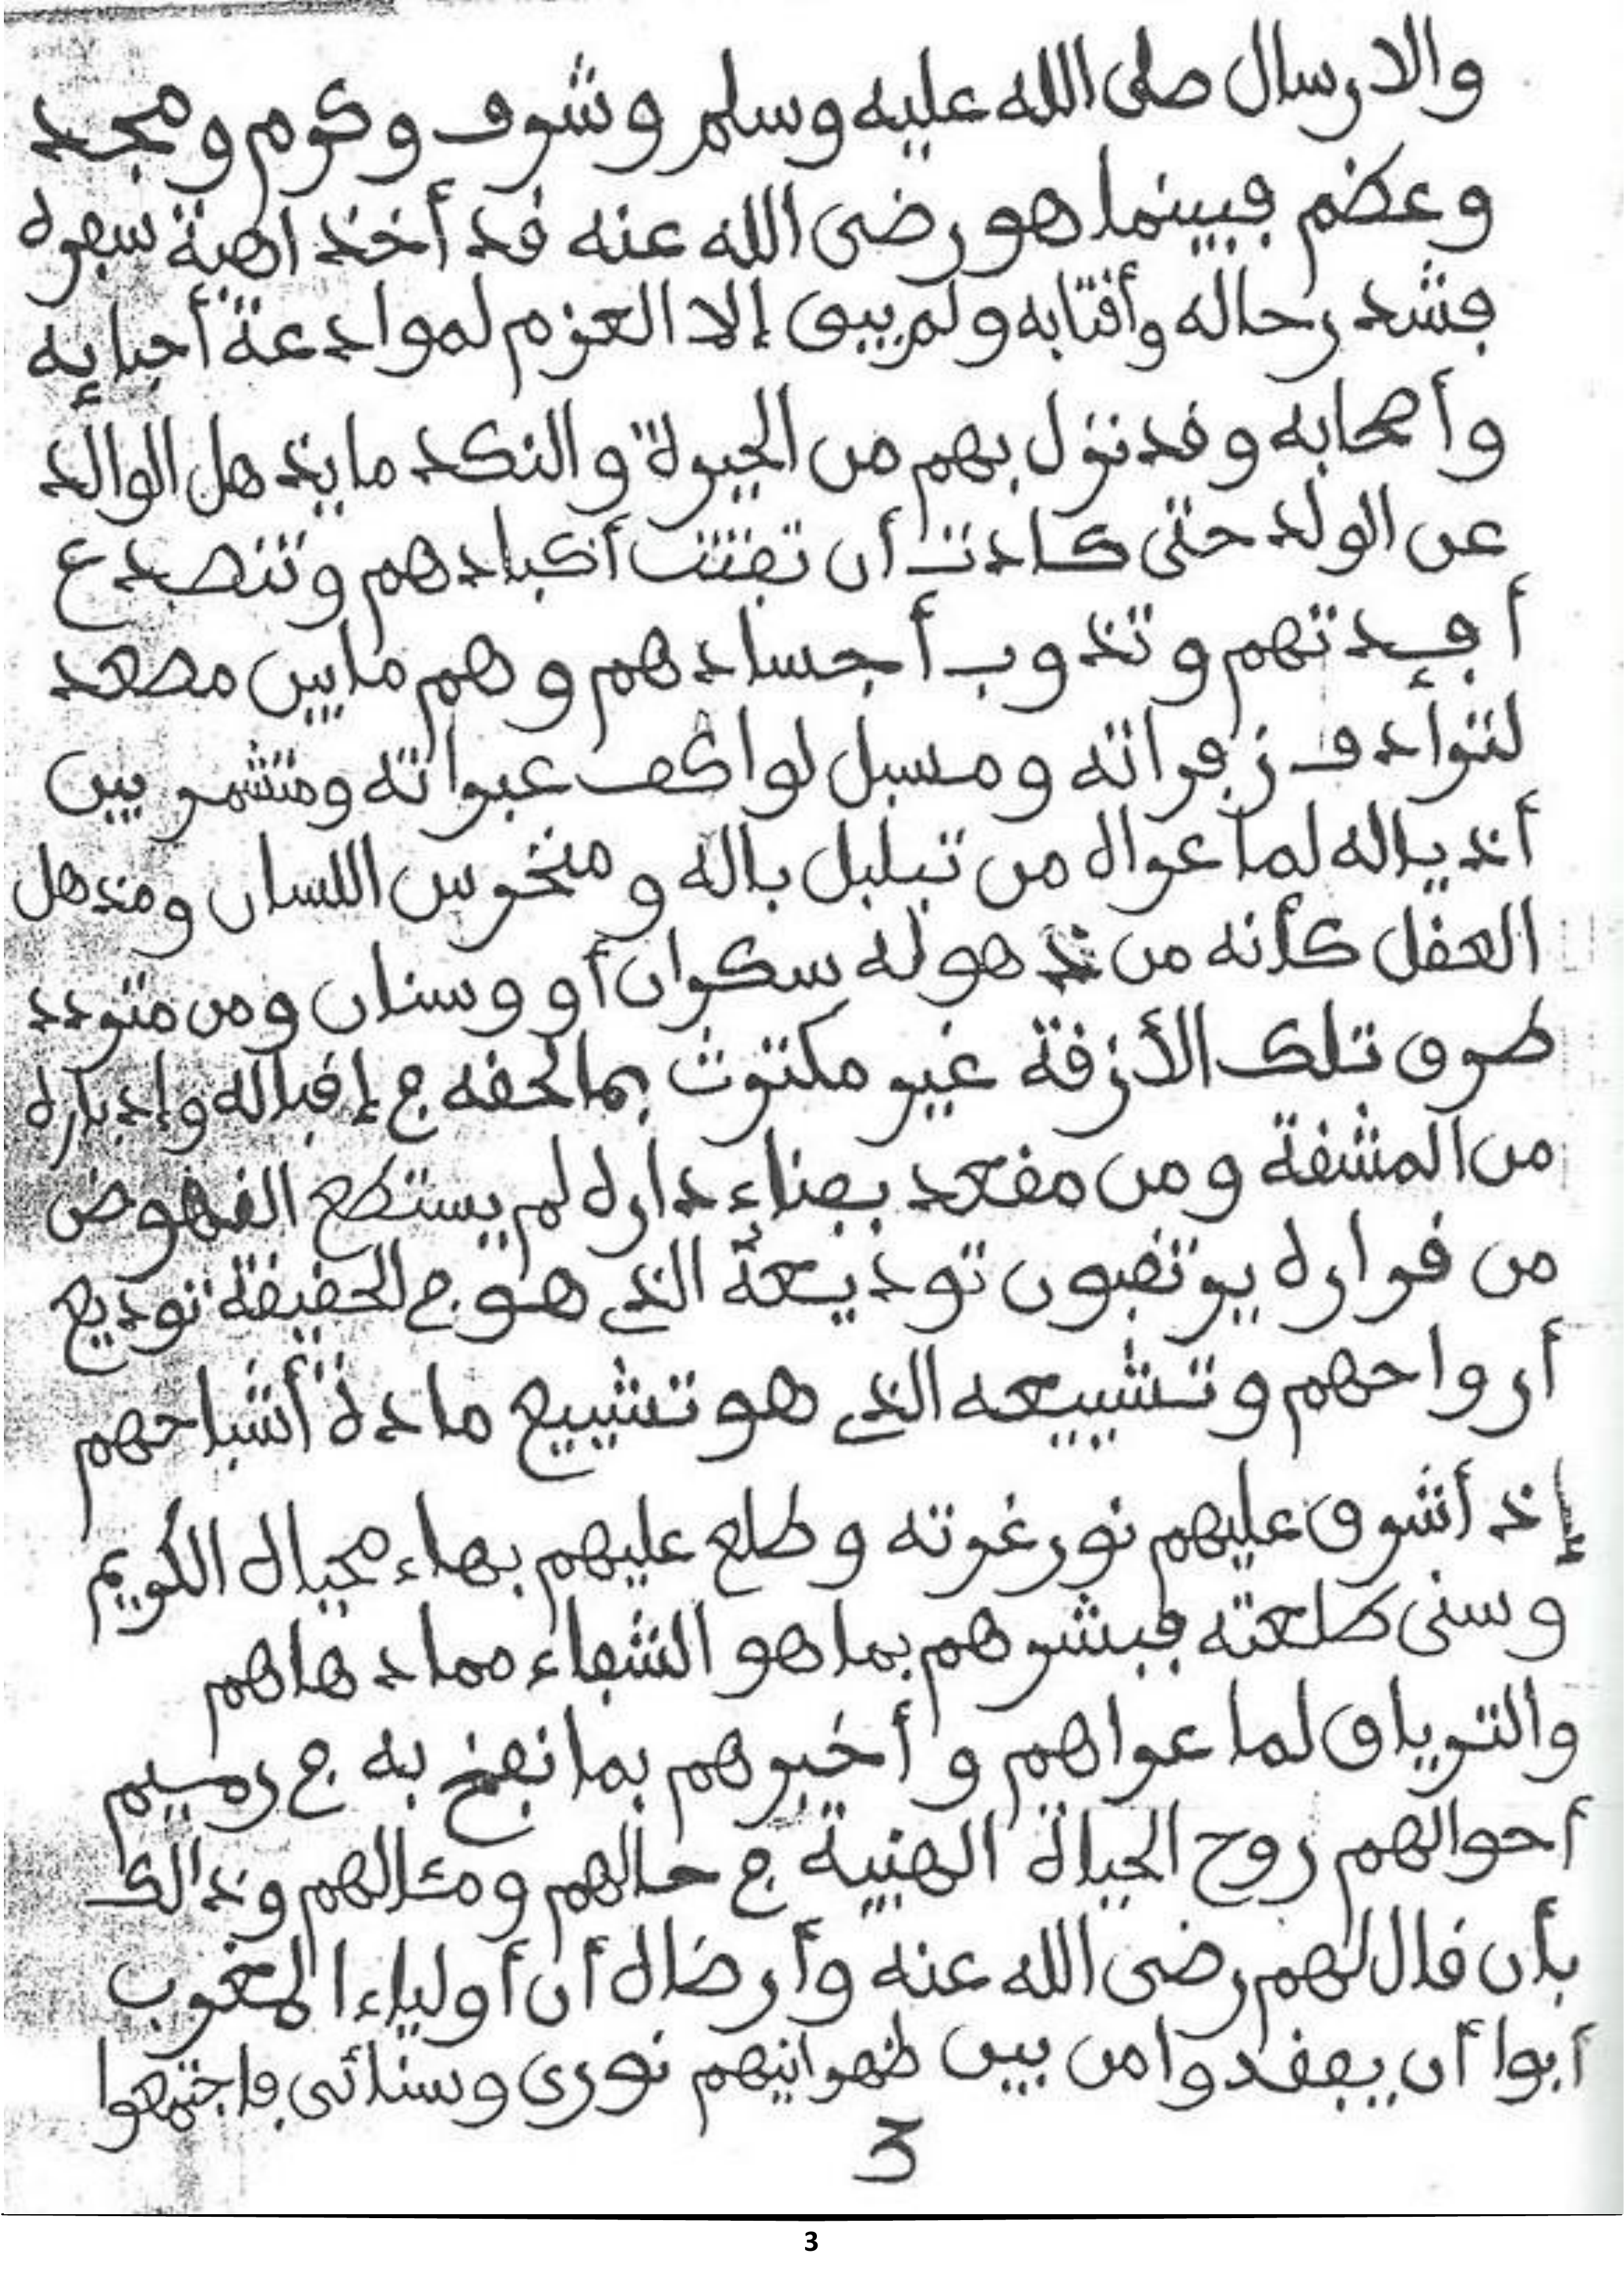 والارسال صلى الله عليه وسلم وشرف وكرم ومجد
وعظم فبينما هو رضى الله عنه قد أخذ اهبة سفره
فشد رحاله وأقتابه ولم يبق إلا العزم لموادعة أحبابه
وأصحابه وقد نزل بهم من الحيرة والنكد ما يذهل الوالد
عن الولد حتى كادت أن تفتت أكبادهم وتنصدع
أفئدتهم وتذوب أجسادهم وهم ما بين مصعد
لترادف زفراته ومسبل لواكف عبراته ومتشمر بين
أذياله لما عراه من تبلبل باله ومنخرس اللسان ومنذهل
العقل كأنه من ذهوله سكران أو وسنان ومن متردد
طرق تلك الأزقة غير مكترث بما لحقه في إقباله وإدباره
من المشقة ومن مقعد بفناء داره لم يستطع النهوض
من قراره يرتقبون توديعه الذي هو في الحقيقة توديع
أرواحهم وتشييعه الذي هو تشييع مادة أشباحهم
إذ أشرق عليهم نور غرته وطلع عليهم بهاء محياه الكريم
وسنى طلعته فبشرهم بما هو الشفاء مما دهاهم
والترياق لما عراهم وأخبرهم بما نفخ به في رميم
أحوالهم روح الحياة الهنية في حالهم ومئالهم وذالك
بأن قال لهم رضى الله عنه وأرضاه أن أولياء المغرب
أبوا أن يفقدوا من بين ظهرانيهم نورى وسنائى فاجتمعوا
3
3